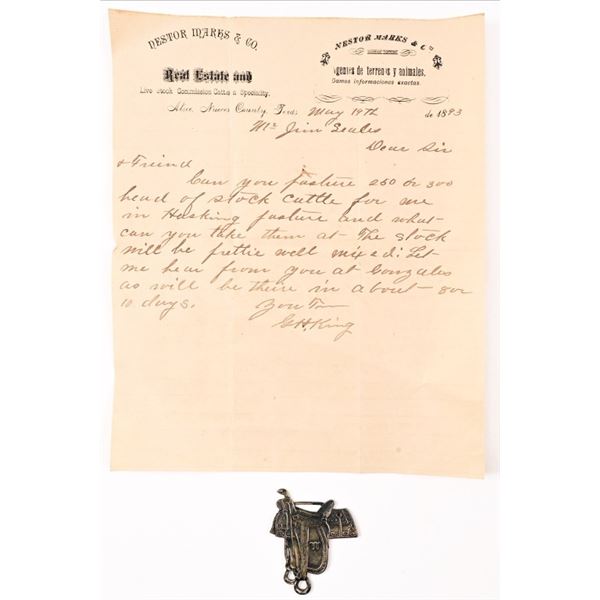 NESTOR MARKS & CO.
Real Estate and
Live stock Commission Cattle a Specialty.
NESTOR MARKS & Co
Agentes de terrenos y animales.
Damos informaciones exactas.
Alice, Nueces County, Texas, May 19th de 1893
Mr Jim Scales
Dear Sir
& Friend
Can you pasture 250 or 300
head of stock cattle for me
in Hosking pasture and what
can you take them at The stock
will be prettie well mixed: Let
me hear from you at Gonzales
as will be there in about 8 or
10 days. Your
G.H. King